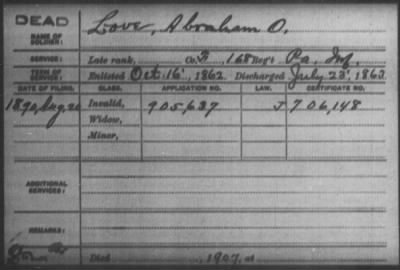 DEAD
NAME OF SOLDIER: Love, Abraham O.
SERVICE: Late rank, Co. F, 168 Reg't Pa. Inf.
TERM OF SERVICE: Enlisted Oct. 16, 1862. Discharged July 25, 1863.
DATE OF FILING. CLASS. APPLICATION NO. LAW. CERTIFICATE NO.
1890, Aug. 20 Invalid, 905,637 J 706,148
Widow,
Minor,
ADDITIONAL SERVICES:
REMARKS:
Died 1907, at